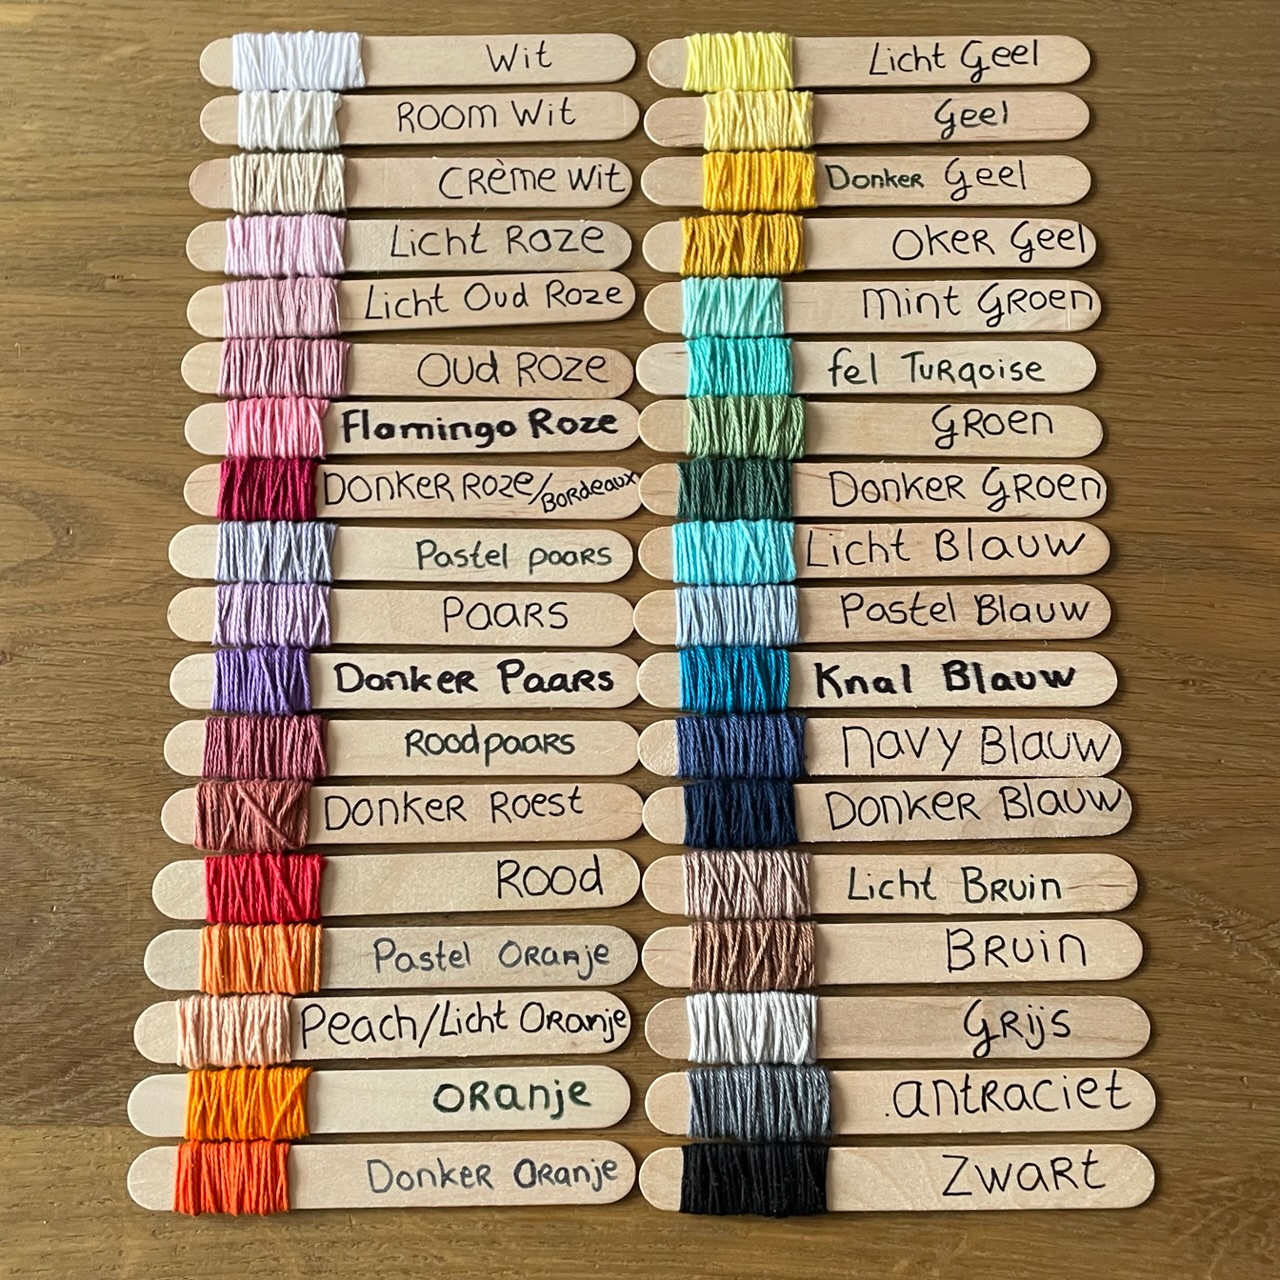 Wit
ROOM Wit
CRème Wit
Licht Roze
Licht Oud Roze
Oud Roze
Flamingo Roze
Donker Roze/Bordeaux
Pastel paars
Paars
Donker Paars
Roodpaars
Donker Roest
Rood
Pastel Oranje
Peach/Licht Oranje
Oranje
Donker Oranje
Licht Geel
Geel
Donker Geel
Oker Geel
Mint Groen
fel Turqoise
Groen
Donker Groen
Licht Blauw
Pastel Blauw
Knal Blauw
Navy Blauw
Donker Blauw
Licht Bruin
Bruin
Grijs
antraciet
Zwart